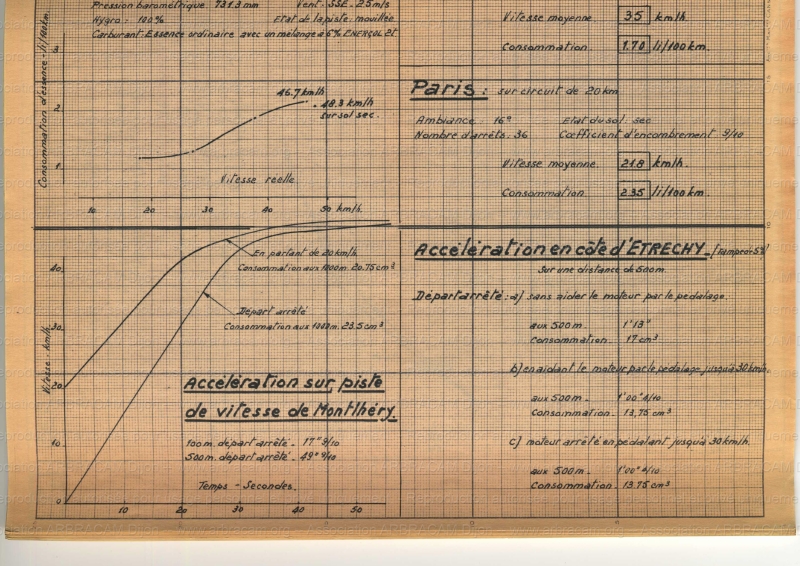 Pression barométrique 731.3 mm Vent: SSE. 25 m/s
Hygro: 100% Etat de la piste: mouillée
Carburant: Essence ordinaire avec un mélange à 6% ENERGOL 2t
Consommation d'essence - li/100km.
3
2
1
46.7 km/h
48.3 km/h
sur sol sec.
Vitesse réelle
10 20 30 40 50 km/h.
Vitesse moyenne. 35 km/h
Consommation. 1.70 li/100 km.
Paris: sur circuit de 20 km
Ambiance: 16° Etat du sol. sec
Nombre d'arrêts. 36 Cœfficient d'encombrement 9/10
Vitesse moyenne 21.8 km/h.
Consommation. 2.35 li/100 km.
Vitesse - km/h.
40
30
20
10
0
En partant de 20 km/h
Consommation aux 1000m. 20.75 cm³
Départ arrêté
Consommation aux 1000m. 23.5 cm³
Accélération sur piste
de vitesse de Montlhéry.
100 m. départ arrêté - 17" 9/10
500 m. départ arrêté - 49" 9/10
Temps - Secondes.
10 20 30 40 50
Accélération en côte d'ETRECHY.
Sur une distance de 500m.
Départ arrêté: a) sans aider le moteur par le pédalage.
aux 500 m. 1'13"
Consommation. 17 cm³
b) en aidant le moteur par le pédalage jusqu'à 30 km/h.
aux 500 m. 1'00" 4/10
Consommation. 13.75 cm³
c) moteur arrêté en pédalant jusqu'à 30 km/h.
aux 500 m. 1'00" 4/10
Consommation. 13.75 cm³